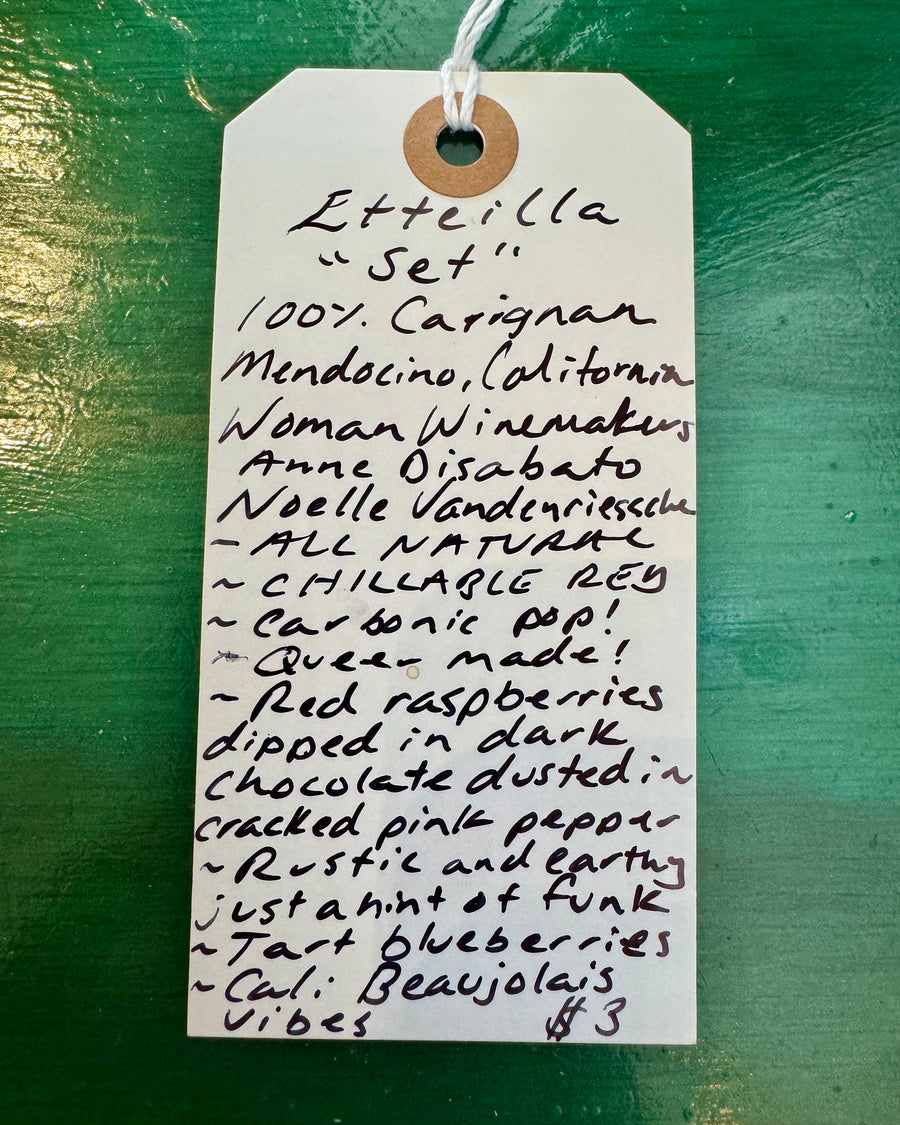 Etteilla
"Set"
100% Carignan
Mendocino, California
Woman Winemakers
Anne Disabato
Noelle Vandenriessche
- ALL NATURAL
~ CHILLABLE RED
~ Carbonic pop!
~ Queer made!
~ Red raspberries
dipped in dark
chocolate dusted in
cracked pink pepper
~ Rustic and earthy
just a hint of funk
~ Tart blueberries
~ Cali Beaujolais
vibes $3